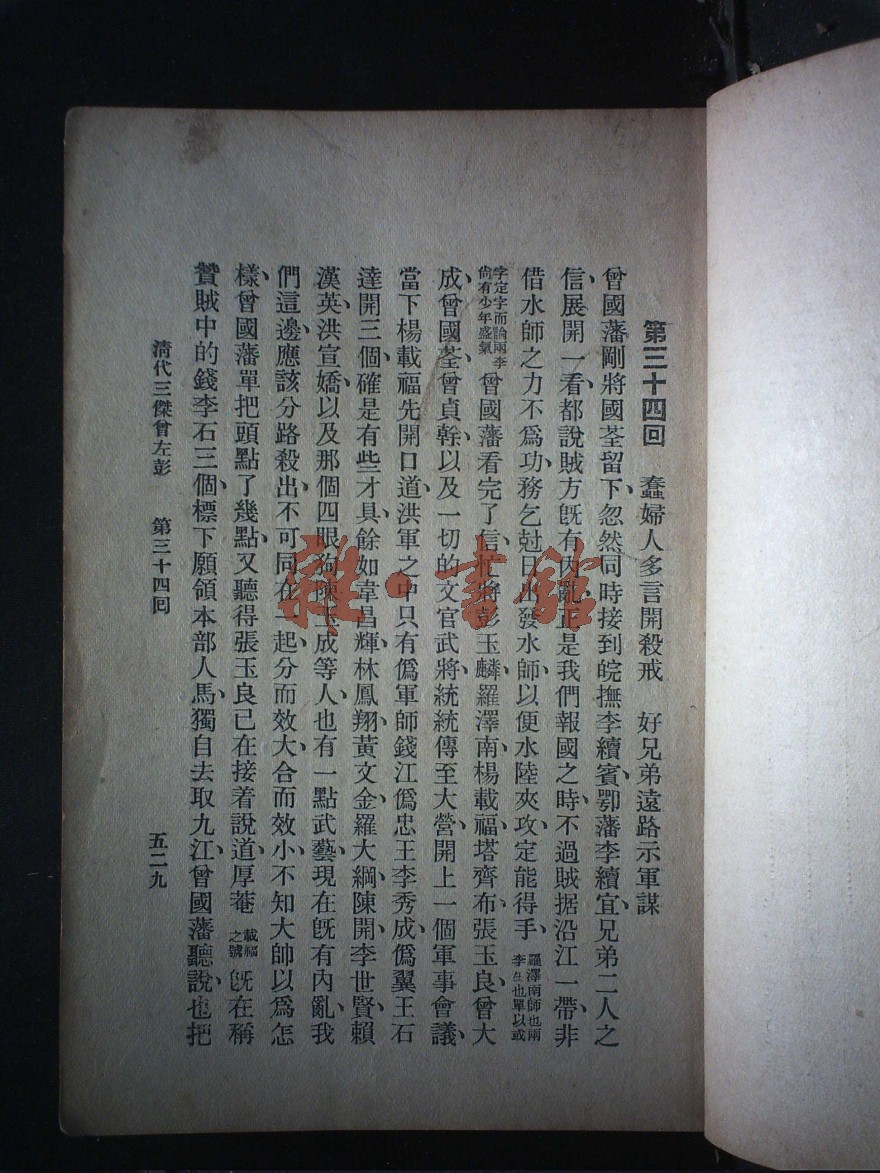 第三十四回　蠢婦人多言開殺戒　好兄弟遠路示軍謀
曾國藩剛將國荃留下、忽然同時接到皖撫李續賓、鄂藩李續宜、兄弟二人之
信、展開一看、都說賊方旣有內亂、正是我們報國之時、不過賊据沿江一帶、非
借水師之力不爲功、務乞尅日出發水師、以便水陸夾攻、定能得手、羅澤南師也兩李生也單以或
字定字而論兩李尙有少年盛氣曾國藩看完了信、忙將彭玉麟羅澤南楊載福塔齊布張玉良曾大
成曾國荃曾貞幹、以及一切的文官武將、統統傳至大營、開上一個軍事會議、
當下楊載福先開口道、洪軍之中、只有僞軍師錢江、僞忠王李秀成、僞翼王石
達開三個、確是有些才具、餘如韋昌輝林鳳翔黃文金羅大綱陳開李世賢賴
漢英洪宣嬌、以及那個四眼狗陳玉成等人、也有一點武藝、現在旣有內亂、我
們這邊、應該分路殺出、不可同在一起、分而效大、合而效小、不知大帥以爲怎
樣、曾國藩單把頭點了幾點、又聽得張玉良已在接着說道、厚菴載福之號旣在稱
贊賊中的錢李石三個、標下願領本部人馬、獨自去取九江、曾國藩聽說、也把
清代三傑曾左彭　第三十四回　五二九
雜·書館